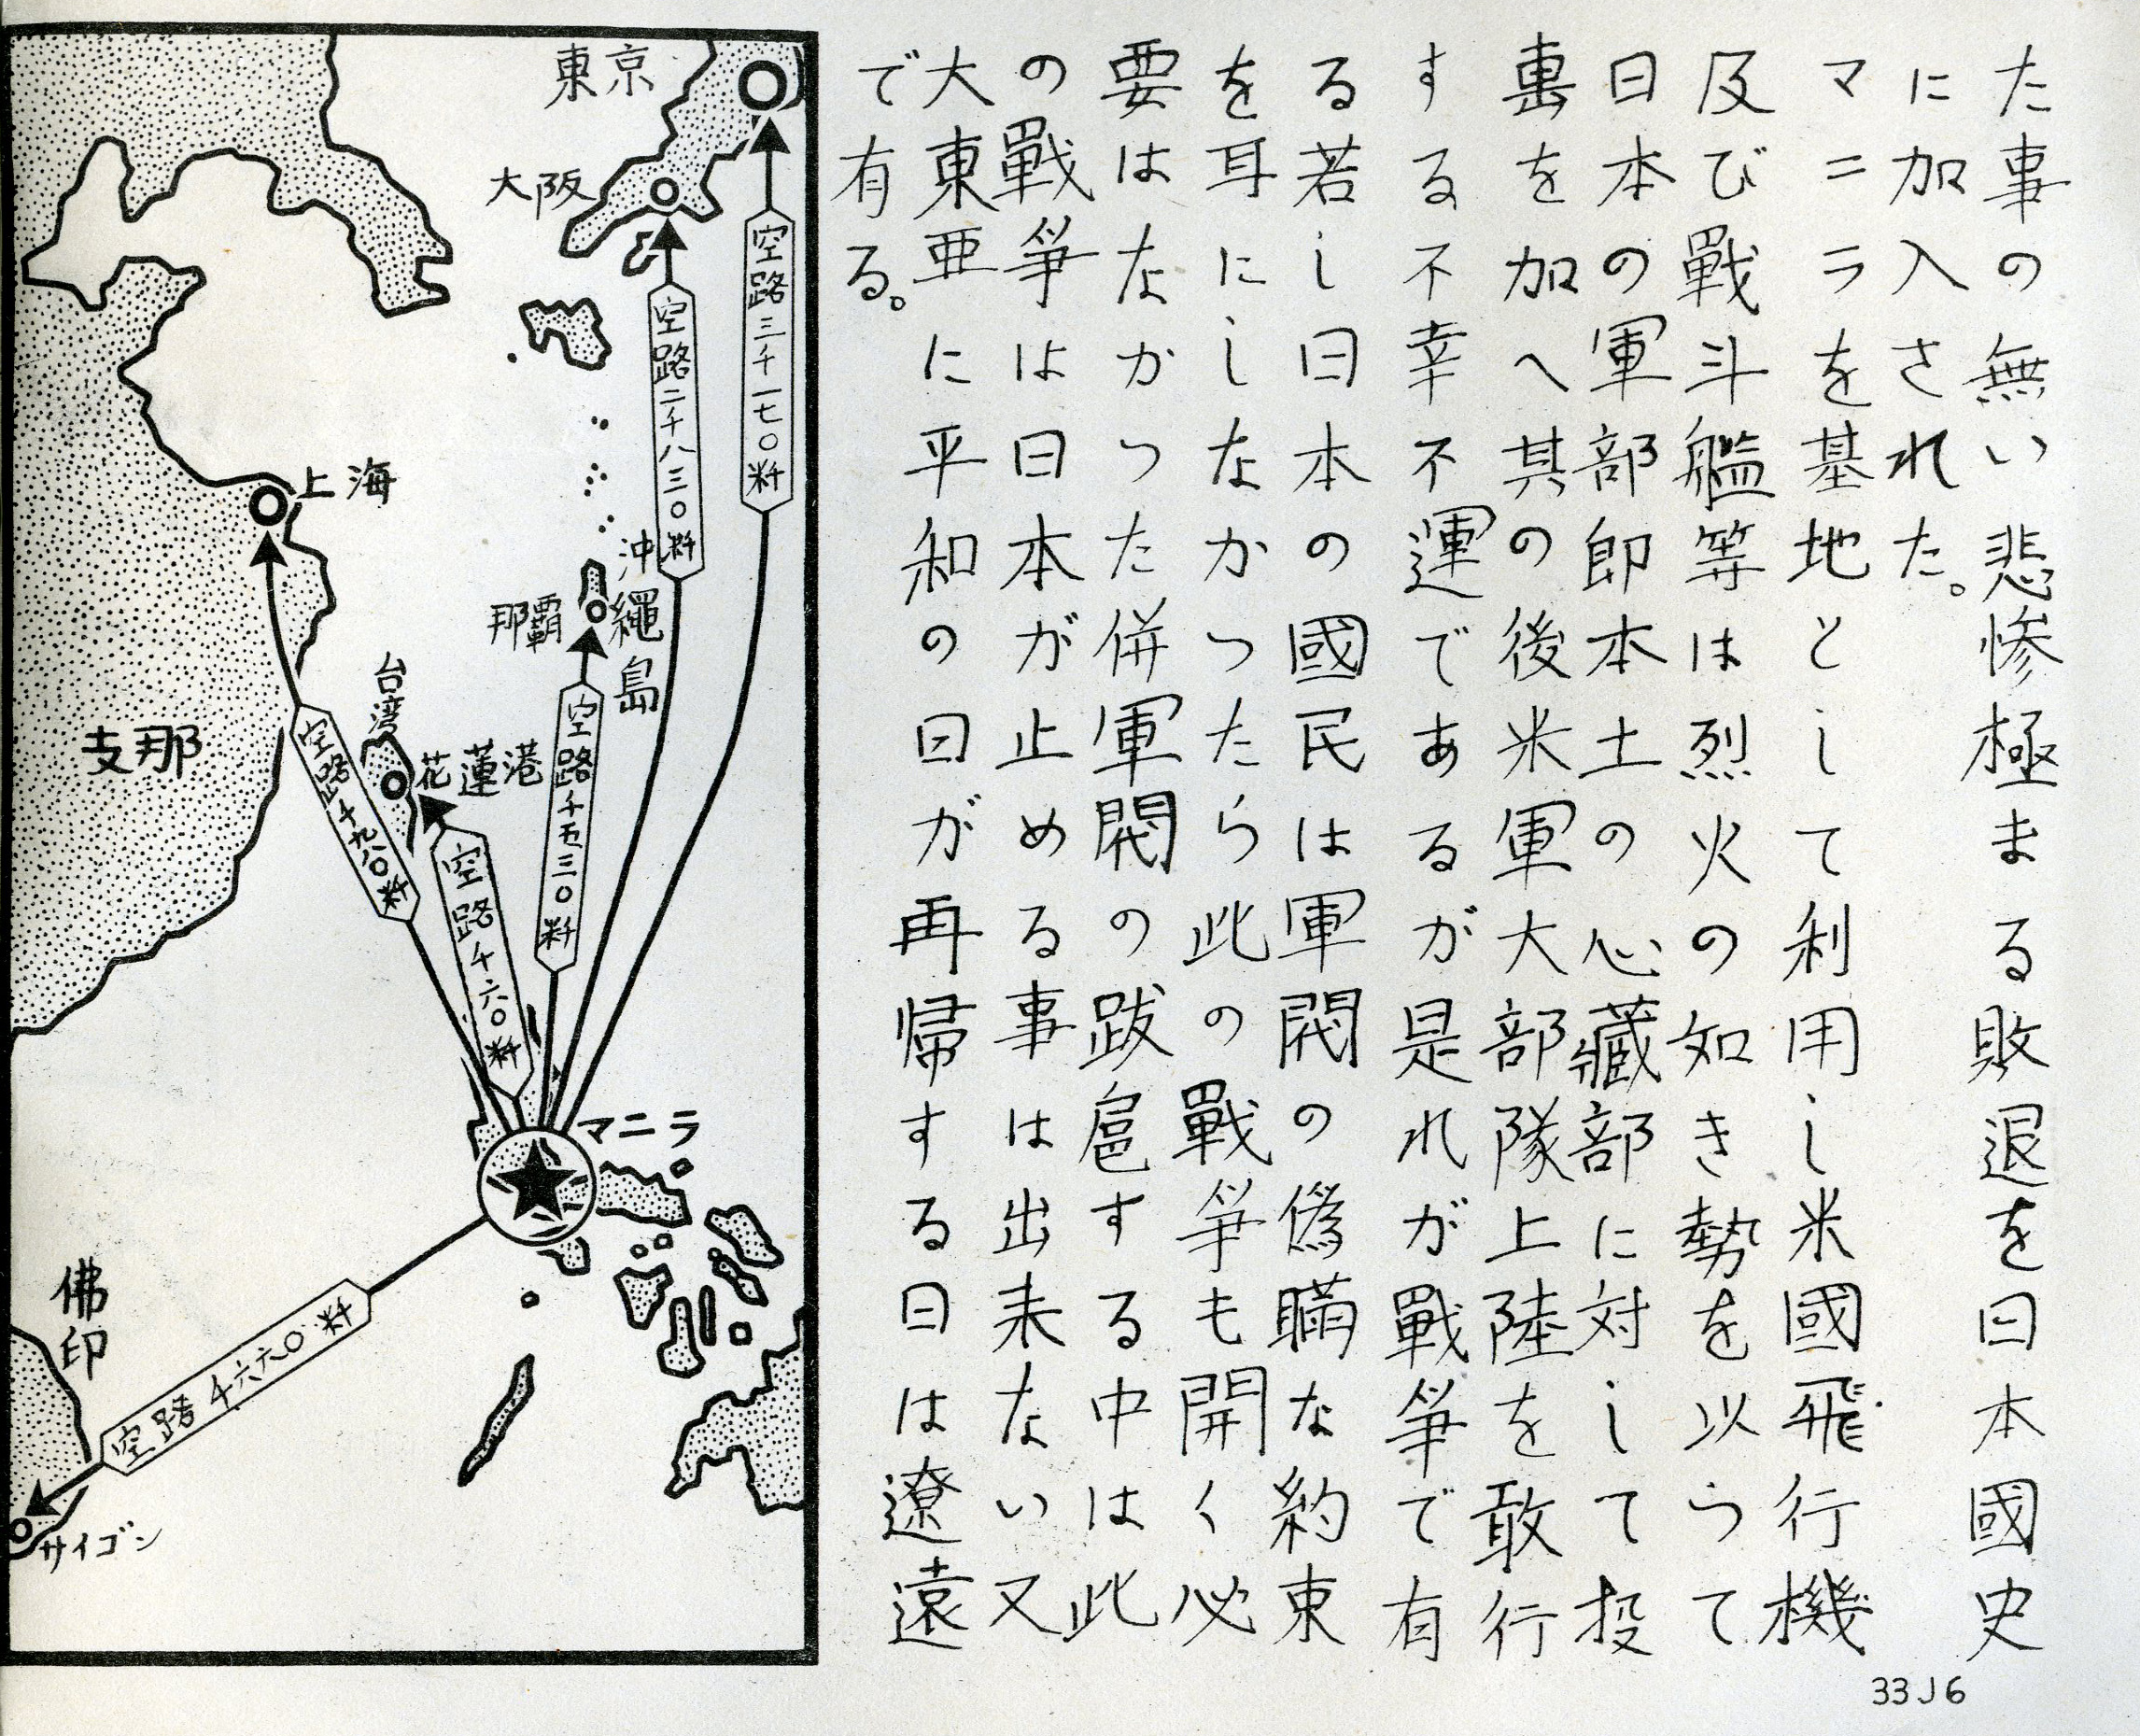 た事の無い悲惨極まる敗退を日本國史
に加入された。
マニラを基地として利用し米國飛行機
及び戰斗艦等は烈火の如き勢を以つて
日本の軍部即本土の心藏部に対して投
裏を加へ其の後米軍大部隊上陸を敢行
する不幸不運であるが是れが戰爭で有
る若し日本の國民は軍閥の偽瞞な約束
を耳にしなかつたら此の戰爭も開く必
要はなかつた併軍閥の跋扈する中は此
の戰爭は日本が止める事は出来ない又
大東亜に平和の日が再帰する日は遼遠
で有る。
東京
大阪
空路三千一七〇粁
空路二千八三〇粁
上海
沖繩島
那覇
台湾
花蓮港
支那
空路千五三〇粁
空路千六〇粁
マニラ
佛印
空路千六六〇粁
サイゴン
33J6